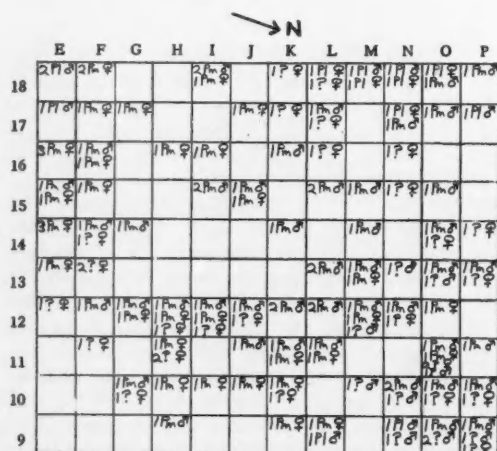 N
E F G H I J K L M N O P
2Pl♂ 2Pm♀ 2Pm♂ 1?♀ 1Pl♀ 1Pl♂ 1Pl♂ 1Pl♀ 1Pm♂
18 1Pm♀ 1?♀ 1Pl♀ 1Pl♀ 1Pm♂
1Pl♂ 1Pm♀ 1Pm♀ 1Pm♀ 1?♀ 1Pm♂ 1Pl♀ 1Pm♂ 1Pl♂
17 1?♀ 1Pm♂
3Pm♀ 1Pm♂ 1Pm♀ 1Pm♀ 1Pm♂ 1?♀ 1?♀
16 1Pm♀
1Pm♂ 1Pm♀ 2Pm♂ 1Pm♂ 2Pm♂ 1Pm♂ 1?♀ 1Pm♂
15 1Pm♀ 1Pm♀
3Pm♀ 1Pm♂ 1Pm♂ 1Pm♂ 1Pm♂ 1Pm♂ 1?♀
14 1?♀ 1?♀
1Pm♀ 2?♀ 2Pm♂ 1Pm♂ 1?♂ 1Pm♂ 1Pm♂
13 1Pm♀ 1?♂ 1?♀
1?♀ 1Pm♂ 1Pm♂ 1Pm♂ 1Pm♂ 1Pm♂ 2Pm♂ 2Pm♂ 1Pm♂ 1Pm♂ 1Pm♀
12 1Pm♀ 1Pm♀ 1Pm♀ 1?♀ 1Pm♀ 1?♀
1?♀ 1?♀
1?♀ 1Pm♂ 1Pm♂ 1Pm♂ 1Pm♂ 1Pm♂
11 2?♀ 1Pm♀ 1Pm♀
1Pm♂ 1Pm♀ 1Pm♀ 1Pm♀ 1Pm♀ 1?♂ 2Pm♂ 1Pm♂ 1Pm♂
10 1?♀ 1?♀ 1?♂ 1?♀ 1?♀
1Pm♂ 1Pm♀ 1Pm♀ 1Pl♂ 1Pm♂ 1Pm♂
9 1Pl♂ 1?♂ 2?♂